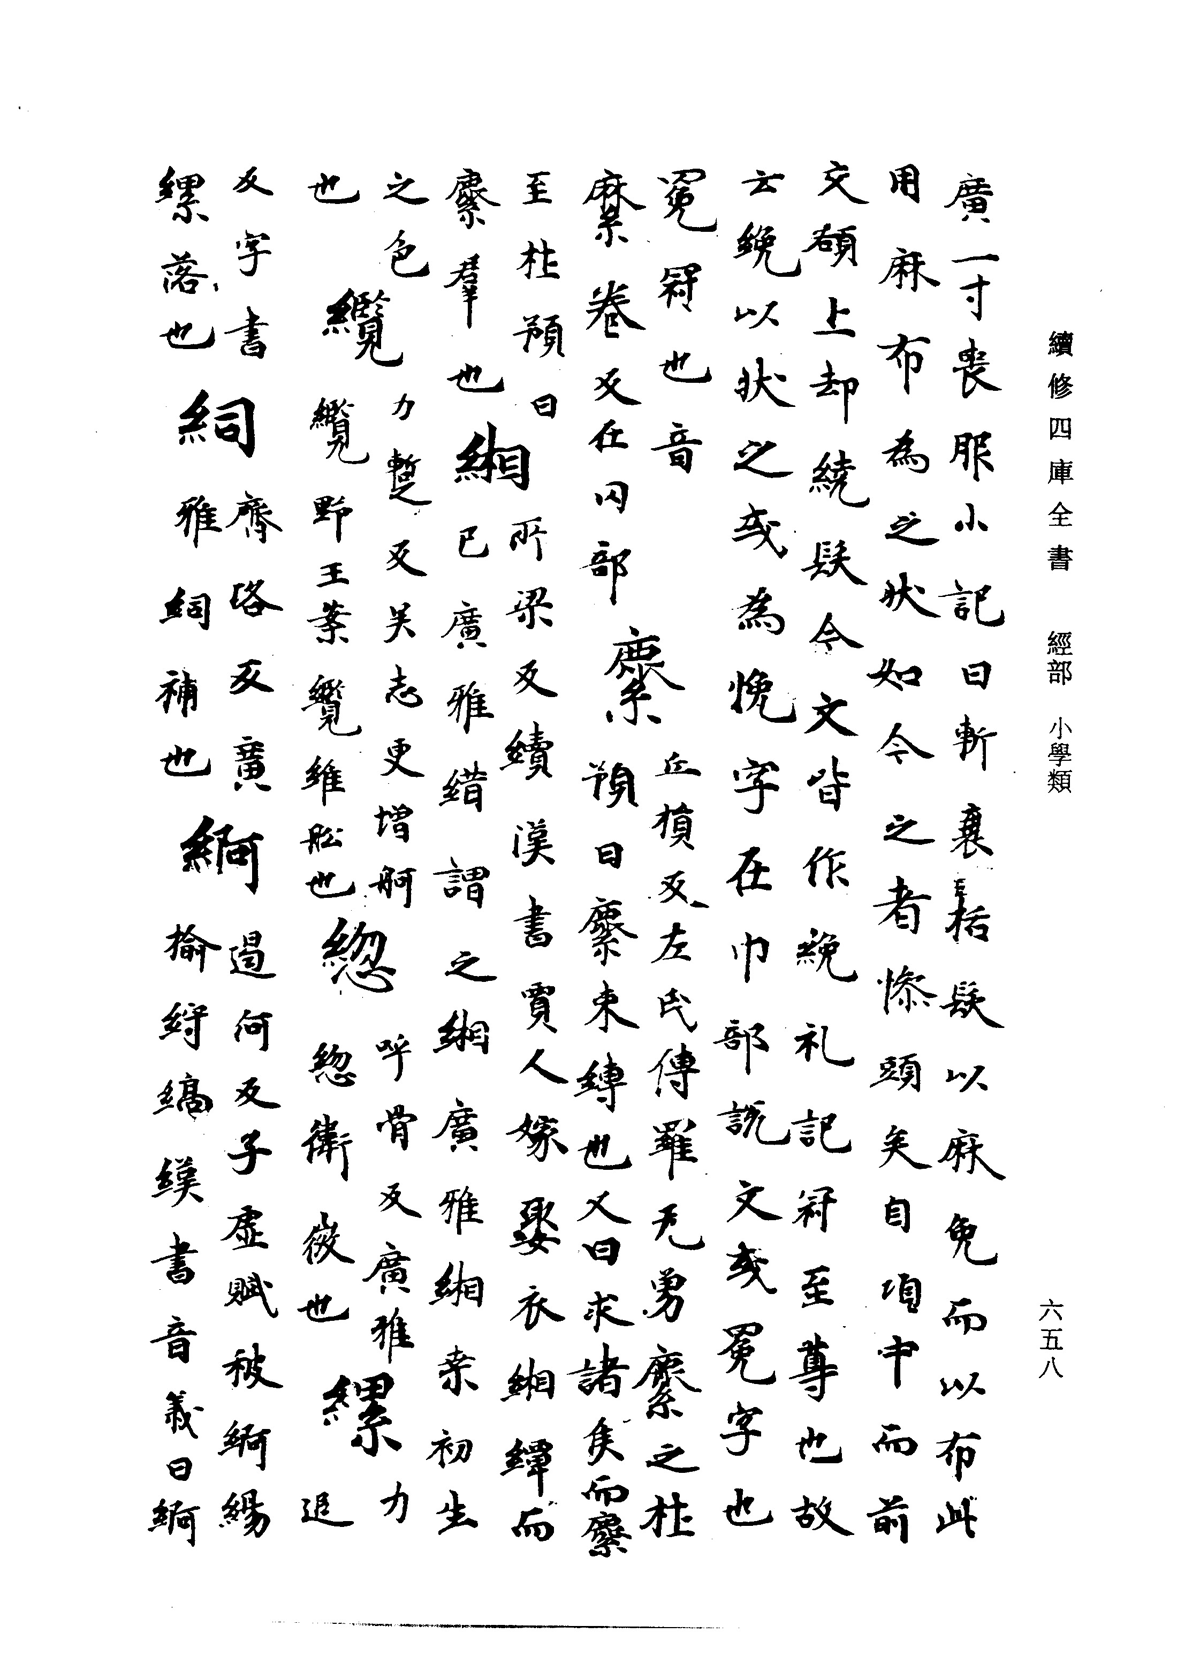 續修四庫全書 經部 小學類
六五八
廣一寸喪服小記曰斬衰括髮以麻免而以布此
用麻布為之狀如今之者幓頭矣自項中而前
交額上却繞髮今文皆作絻礼記冠至尊也故
云絻以狀之或為悗字在巾部說文或冕字也
冕冠也音
麇卷反在囗部
麇丘隕反左氏傳羅无勇麇之杜
預曰麇束縛也又曰求諸侯而麇
至杜預曰
麇羣也
緗所梁反續漢書賈人嫁娶衣緗縹而
已廣雅緗謂之緗廣雅緗桒初生
之色
也
纜力暫反吳志更增舸
纜野王案纜維舩也
緫呼骨反廣雅
緫衛微也
縲力追
反字書
縲落也
䋛齊咯反廣
雅䋛補也
綗過何反子虛賦被綗緆
揄紵縞漢書音義曰綗